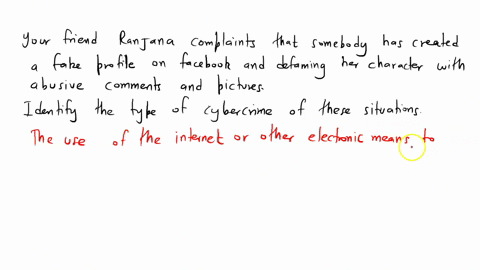 Your friend Ranjana complaints that somebody has created
a fake profile on facebook and defaming her character with
abusive comments and pictures.
Identify the type of cybercrime of these situations.
The use of the internet or other electronic means to